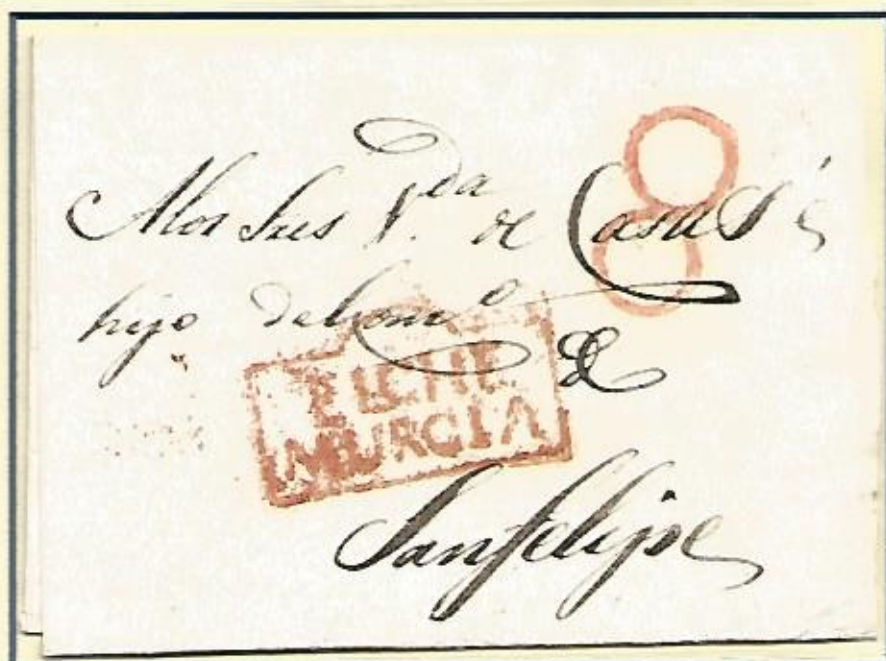 8
A los Sres V.da de Casa
hijo
ELCHE
MURCIA
San felipe